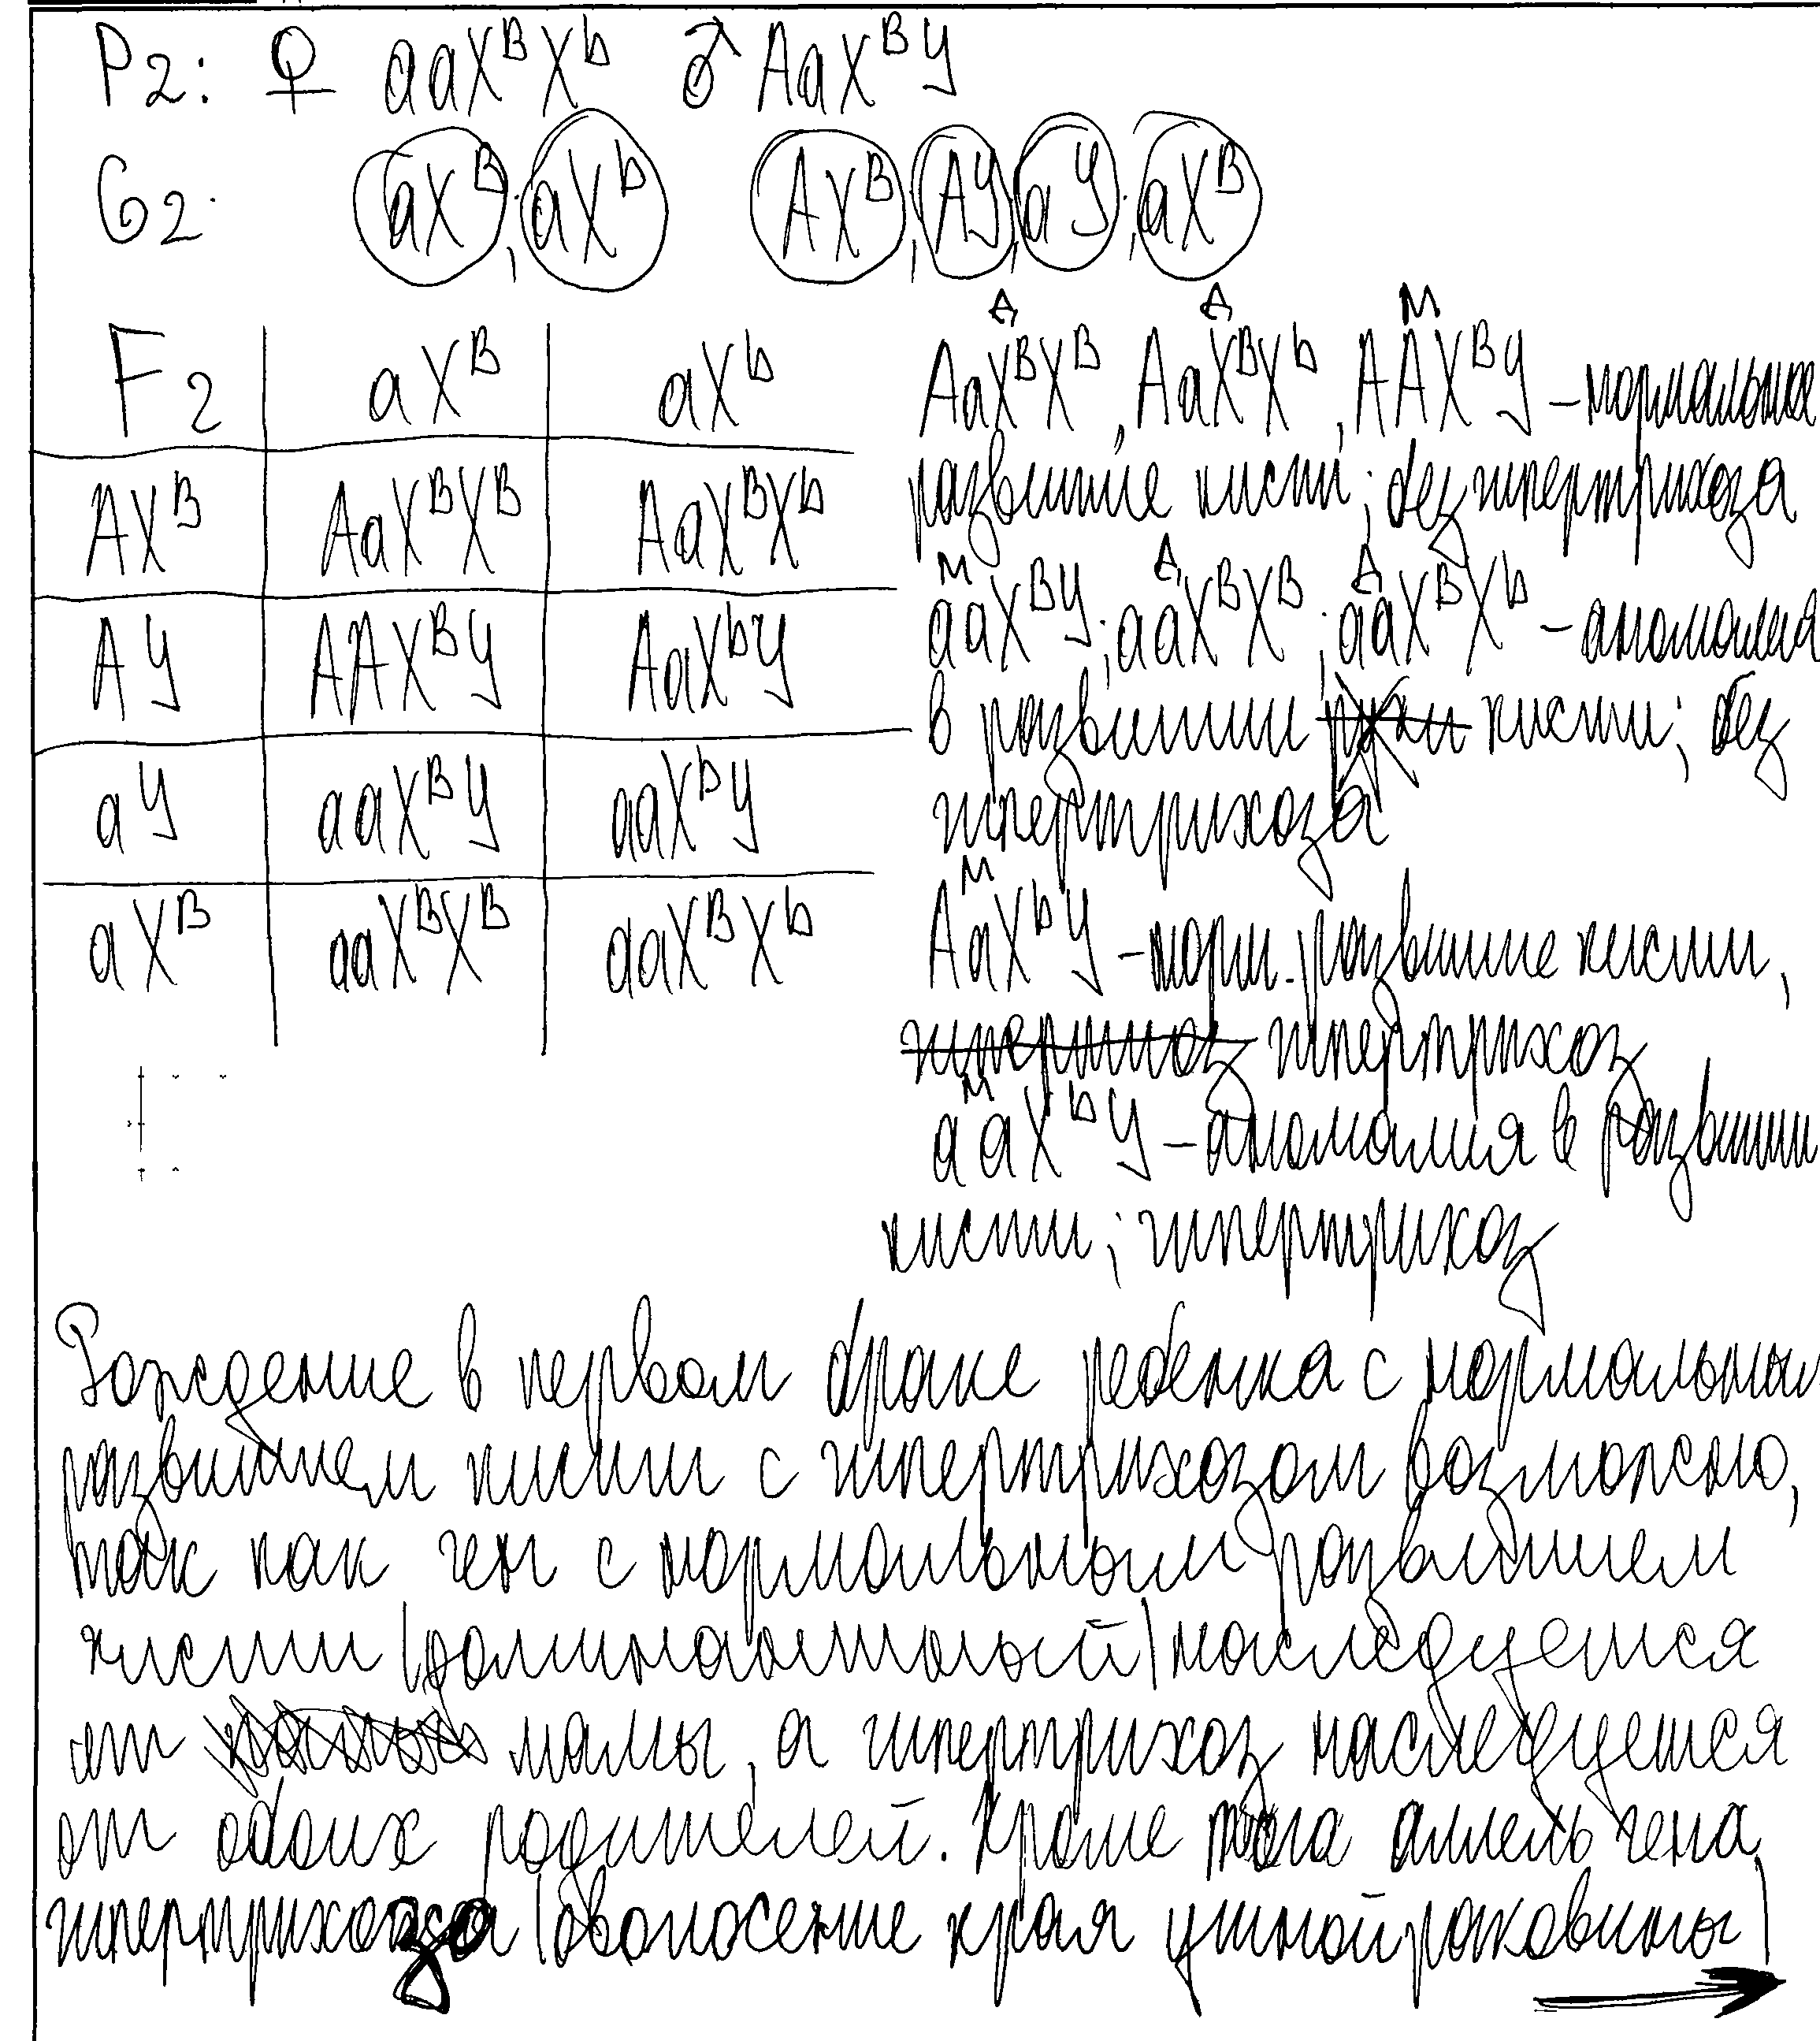 P2: ♀ aaXᴮXᵇ ♂ AaXᴮY
G2. aXᴮ; aXᵇ AXᴮ; AY; aY; aXᴮ
F2 aXᴮ aXᵇ
AXᴮ AaXᴮXᴮ AaXᴮXᵇ
AY AAXᴮY AaXᵇY
aY aaXᴮY aaXᵇY
aXᴮ aaXᴮXᴮ aaXᴮXᵇ
Д Д М
AaXᴮXᴮ, AaXᴮXᵇ, AAXᴮY – нормальное
развитие кисти; без гипертрихоза
М Д Д
aaXᴮY; aaXᴮXᴮ; aaXᴮXᵇ – аномалия
в развитии кисти; без
гипертрихоза
М
AaXᵇY – норм. развитие кисти,
гипертрихоз
М
aaXᵇY – аномалия в развитии
кисти; гипертрихоз
Рождение в первом браке ребенка с нормальным
развитием кисти с гипертрихозом возможно,
так как ген с нормальным развитием
кисти (доминантный) наследуется
от мамы, а гипертрихоз наследуется
от обоих родителей. Кроме того аллель гена
гипертрихоза (оволосение края ушной раковины)